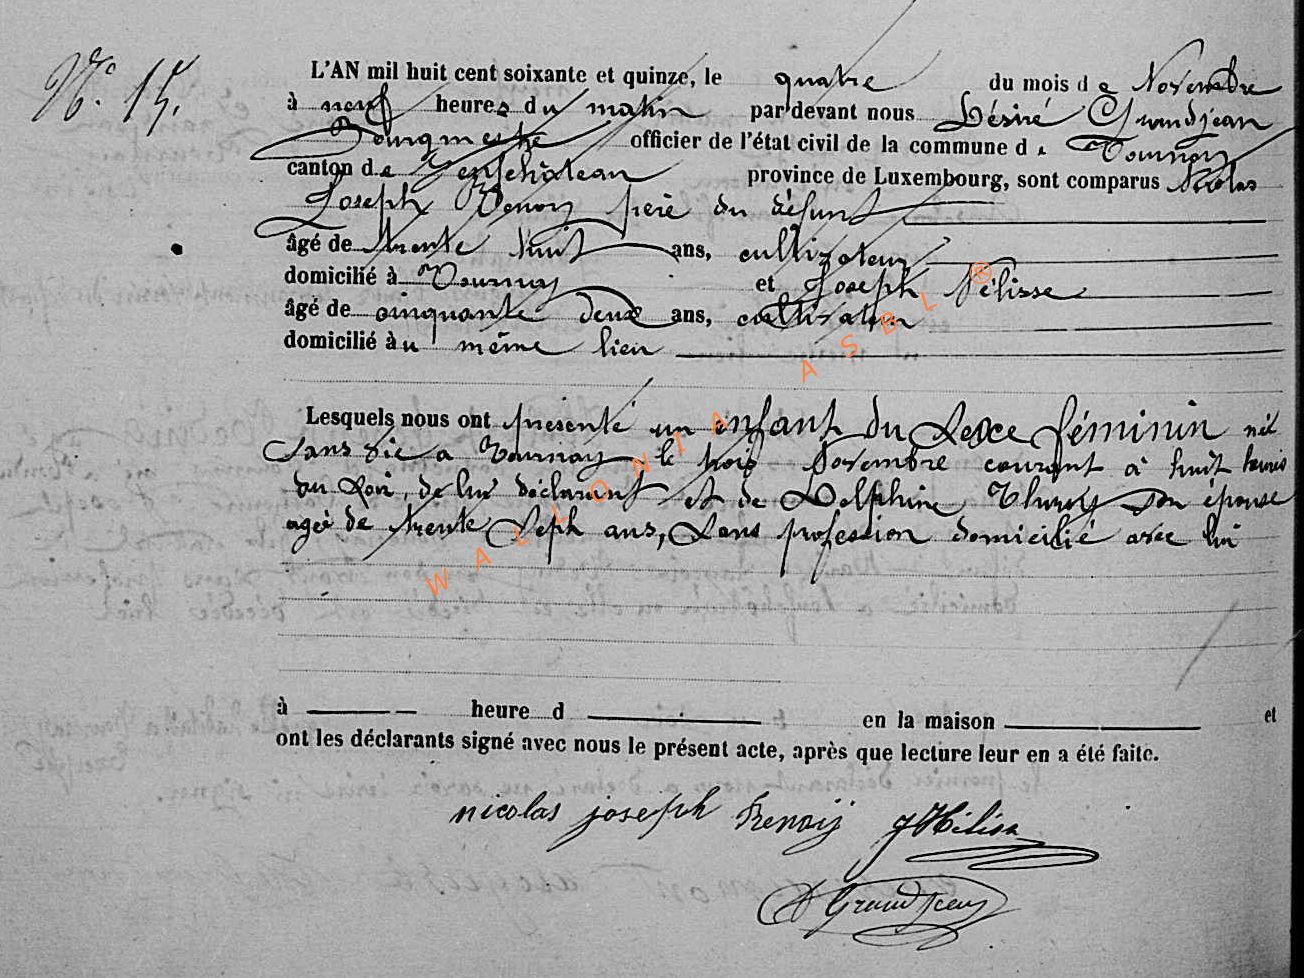 N° 15.
L'AN mil huit cent soixante et quinze, le quatre du mois de Novembre
à neuf heures du matin par devant nous Désiré Grandjean
Bourgmestre officier de l'état civil de la commune de Tournay
canton de Neufchâteau province de Luxembourg, sont comparus Nicolas
Joseph Renoy père du défunt
âgé de trente huit ans, cultivateur
domicilié à Tournay et Joseph Hélisse
âgé de cinquante deux ans, cultivateur
domicilié au même lieu
Lesquels nous ont présenté un enfant du Sexe féminin né
sans vie a Tournay le trois Novembre courant à huit heures
du Soir, de lui déclarant et de Delphine son épouse
agée de trente Sept ans, Sans profession domicilié avec lui
à heure d en la maison et
ont les déclarants signé avec nous le présent acte, après que lecture leur en a été faite.
nicolas joseph Renoÿ JHélisse
D Grandjean
WALLONIA ASBL ®